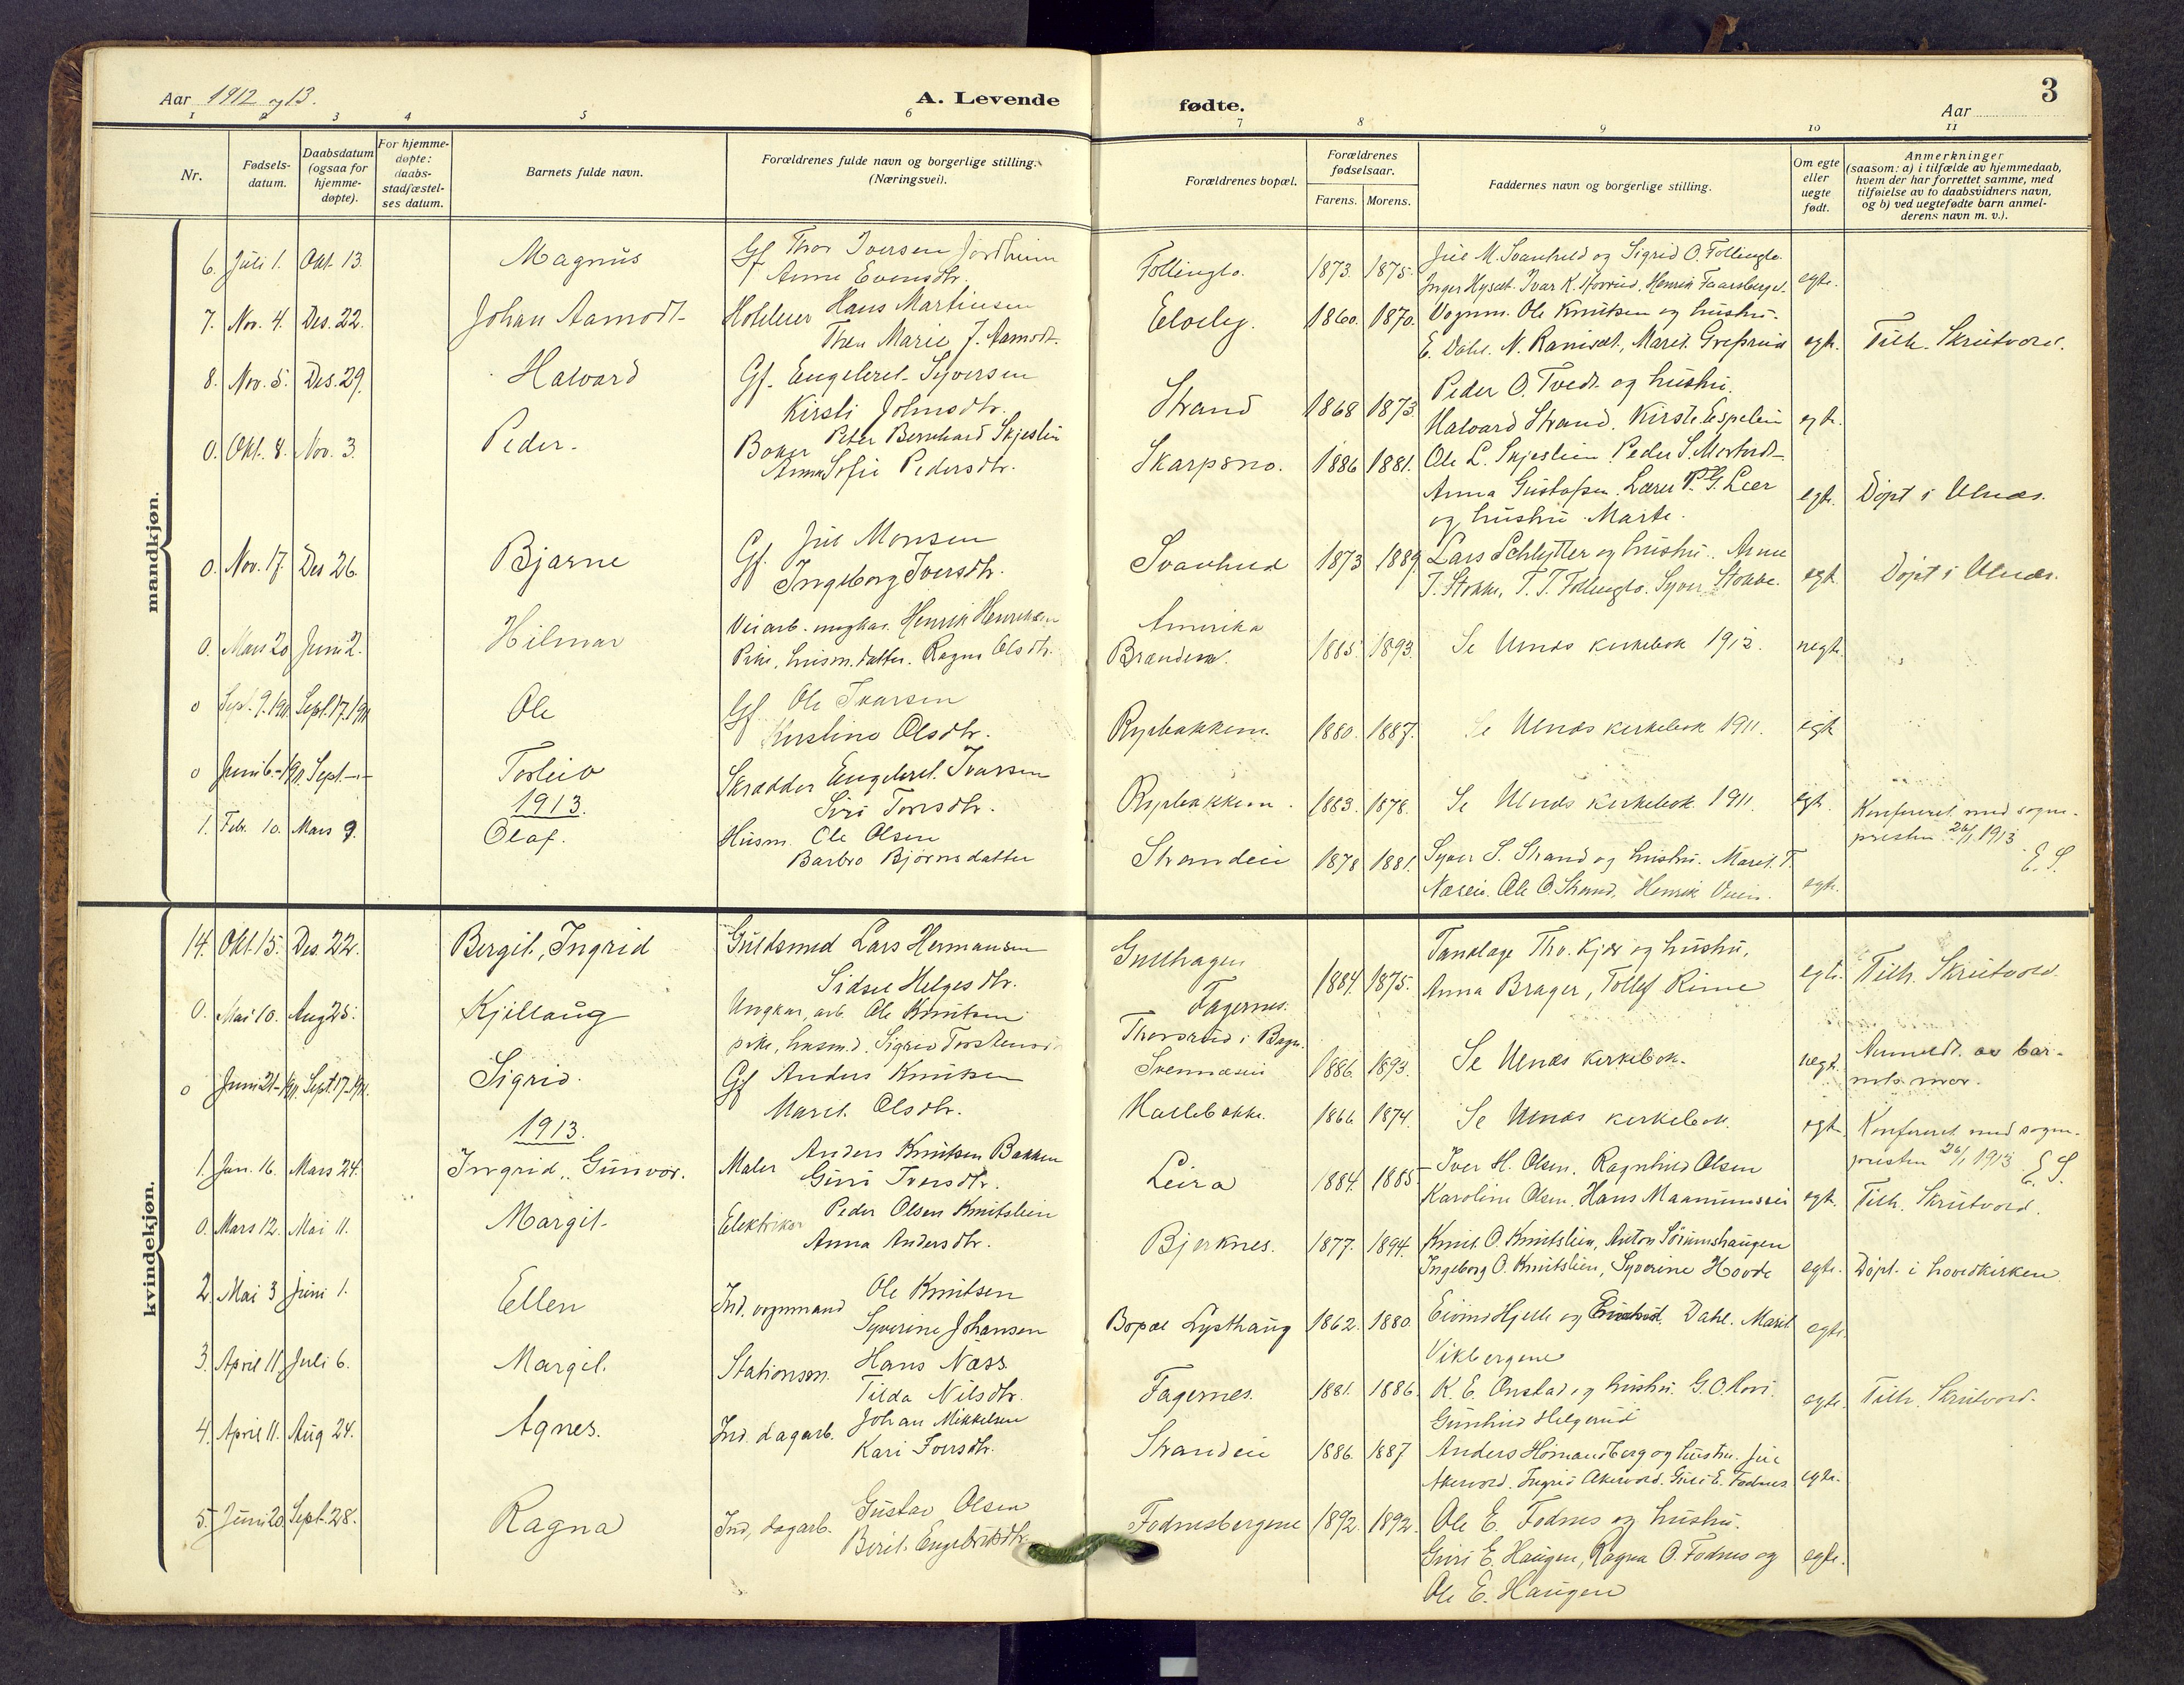 Aar 1912 og 13.
A. Levende fødte.
Aar
3
1 2 3 4 5 6 7 8 9 10 11
Nr.
Fødsels-
datum.
Daabsdatum
(ogsaa for
hjemme-
døpte).
For hjemme-
døpte:
daabs-
stadfæstel-
ses datum.
Barnets fulde navn.
Forældrenes fulde navn og borgerlige stilling.
(Næringsvei).
Forældrenes bopæl.
Forældrenes
fødselsaar.
Farens. Morens.
Faddernes navn og borgerlige stilling.
Om egte
eller
uegte
født.
Anmerkninger
(saasom: a) i tilfælde av hjemmedaab,
hvem der har forrettet samme, med
tilføielse av to daabsvidners navn,
og b) ved uegtefødte barn anmel-
derens navn m. v.).
mandkjøn.
6. Juli 1. Okt. 13. Magnus Gf Thor Iversen Jordheim
Anne Evensdtr. Follinglo. 1873. 1875. Jul M. Svanhild og Sigrid O. Follinglo.
Inger Hyset. Ivar K. egte.
7. Nov. 4. Des. 22. Johan Aamodt Hoteleier Hans Martinsen
Thea Marie J. Aamodt. Elvelig. 1860. 1870. Vognm. Ole Knutsen og hustru.
E. Dahl. N. Ranisæt, Marit egte. Tilh. Skrutvold.
8. Nov. 5. Des. 29. Halvard Gf. Engebret Syversen
Kirsti Johnsdtr. Strand 1868 1873 Peder O. Tvedt og hustru.
Halvard Strand. Kirsti Espelien egte.
0. Okt. 8. Nov. 3. Peder. Baker Peter Bernhard Skjeslin
Anna Sofie Pedersdtr. Skarpsno. 1886 1881. Ole L. Skjeslien. Peder S.
Anna Gustafsen. Lærer P. G. Leer
og hustru Marte. egte. Døpt i Ulnæs.
0. Nov. 17. Des 26. Bjarne Gf. Jul Monsen
Ingeborg Iversdtr. Svanhild 1873 1889 Lars Schlytter og hustru. Anne
T. Stokke, T. T. Follinglo. Syver Stokke. egte. Døpt i Ulnæs.
0. Mars 20 Juni 2. Hilmar Veiarb. ungkar. Henrik Henriksen
Pike, husm. datter. Ragna Olsdtr. Amerika
Brænden. 1885. 1893. Se Ulnæs kirkebok 1912. uegte.
0 Sept. 9. 1911. Sept. 17. 1911 Ole Gf Ole Ivarsen
Kirstine Olsdtr. Rypbakken. 1880. 1887. Se Ulnæs kirkebok 1911. egte
0 Juni 6.-1911 Sept —"— Torleiv Skrædder Engebret Ivarsen
Siri Torsdtr. Rypbakken. 1883. 1878. Se Ulnæs kirkebok 1911. egte. Konfereret med sogne-
presten 26/1 1913. E. S.
1913.
1. Febr. 10. Mars 9. Olaf. Husm. Ole Olsen
Barbro Bjørnsdatter Strandeie 1878 1881. Syver S. Strand og hustru. Marit T.
Næseie. Ole O. Strand, Henrik egte.
kvindekjøn.
14. Okt. 15. Des. 22. Bergit, Ingrid Guldsmed Lars Hermansen
Sidsel Helgesdtr. Gullhagen
Fagernes. 1884. 1875. Tandlæge Thv. Kjær og hustru.
Anna Brager, Tollef Rime egte. Tilh. Skrutvold.
0. Mai 10. Aug 25. Kjellaug Ungkar, arb. Ole Knutsen
pike, husm.d. Sigrid Thorsrud i Bagn.
Svennæseie 1886. 1893. Se Ulnæs kirkebok. uegte. Anmeldt av bar-
nets mor.
0 Juni 21-1911. Sept. 17-1911. Sigrid. Gf Anders Knutsen
Marit Olsdtr. Hallebakke. 1866 1874. Se Ulnæs kirkebok. egte. Konfereret med sogne-
presten 26/1 1913. E. S.
1913.
1. Jan. 16. Mars 24. Ingrid, Gunvor. Maler Anders Knutsen Bakken
Guri Iversdtr. Leira 1884. 1885. Iver H. Olsen. Ragnhild Olsen
Karoline Olsen. Hans egte. Tilh. Skrutvold.
0. Mars 12. Mai 11. Margit Elektriker Peder Olsen Knutslien
Anna Andersdtr. Bjerknes. 1877. 1894. Knut O. Knutslien, Anton Sørumshaugen
Ingeborg O. Knutslien, Syverine Hovde egte. Døpt i hovedkirken
2. Mai 3 Juni 1. Ellen Ind. vognmand Ole Knutsen
Syverine Johansen Bopæl Lysthaug 1862. 1880. Eivind Hjelle og Dahl. Marit
Vikbergene egte.
3. April 11. Juli 6. Margit. Stationsm. Hans Næss
Tilda Nilsdtr. Fagernes. 1881. 1886. K. E. Onstad og hustru. G. O.
Gunhild Helgerud egte. Tilh. Skrutvold.
4. April 11. Aug 24. Agnes. Ind. dagarb. Johan Mikkelsen
Kari Iversdtr. Strandeie 1886. 1887 Anders og hustru. Jul
Akervold. Ingrid Akervold. Guri E. Fodnes egte.
5. Juni 20. Sept. 28. Ragna Ind. dagarb. Gustav Olsen
Berit Engebretsdtr. Fodnesbergene 1892. 1892. Ole E. Fodnes og hustru.
Guri E. Haugen, Ragna O. Fodnes og
Ole E. Haugen egte.